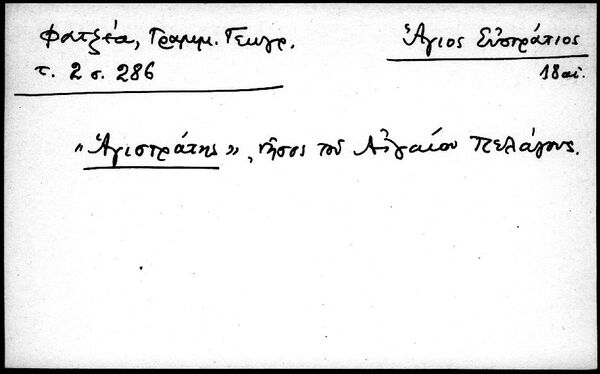 Φατζέα, Γραμμ. Γεωγρ.
τ. 2 σ. 286
Ἅγιος Εὐστράτιος
18 αἰ.
"Ἁγιστράτης", νῆσος τοῦ Αἰγαίου Πελάγους.